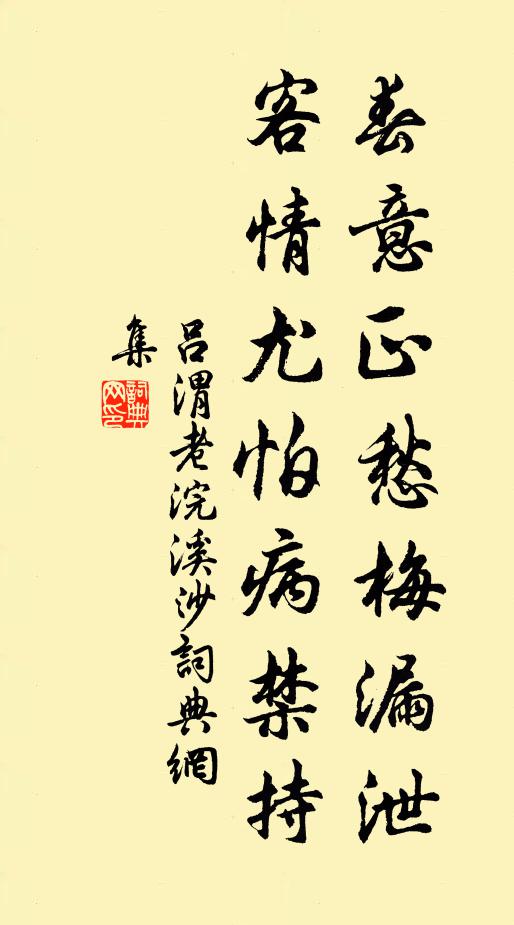 春意正愁梅漏泄
客情尤怕病禁持
吕渭老浣溪沙詞典網
集
詞典网印